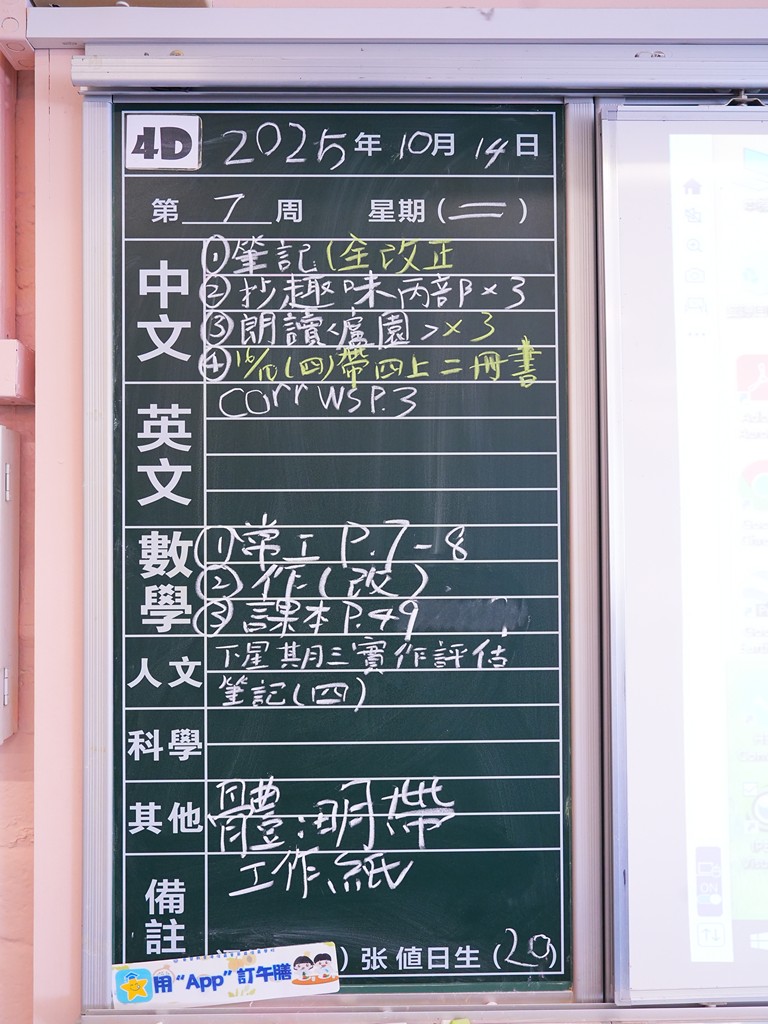 4D 2025年10月14日
第 7 周 星期(二)
中文
①筆記(全改正
②抄趣味丙部×3
③朗讀<廬園>×3
④16/10(四)帶四上二冊書
英文
corr WS P.3
數學
①常工 P.7-8
②作(改)
③課本 P.49
人文
下星期三實作評估
筆記(四)
科學
其他
體:明帶
工作紙
備註
)张 值日生(29)
用“App”訂午膳